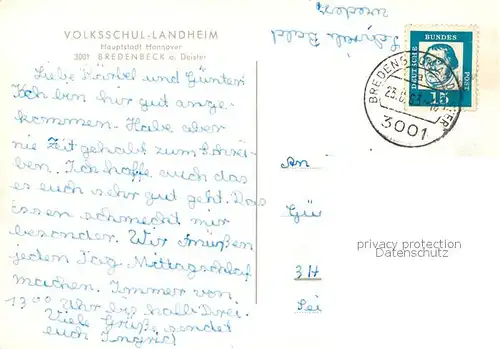 VOLKSSCHUL-LANDHEIM
Hauptstadt Hannover
3001 BREDENBECK a. Deister
Liebe Bärbel und Günter
Ich bin hir gut ange-
kommen. Habe aber
nie Zeit gehabt zum Schrei-
ben. Ich hoffe euch das
es euch sehr gut geht. Das
essen schmeckt mir
besonder. Wir müßen
jeden Tag Mittagschlaf
machen. Immer von
13⁰⁰ Uhr bis halb Drei.
Viele Grüße sendet
euch Ingrid
Schreib Bald
wieder
DEUTSCHE BUNDES POST
15
3001
An
Gü
3H
privacy protection
Datenschutz